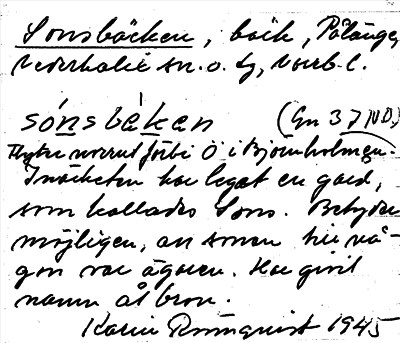 Sonsbäcken, bäck, Pålänge,
Nederkalix sn. o. tg, Norrb. l.
sónsbɛkan (Gn 37 ND.)
Flyter norrut förbi Ö i Björnholmen.
I närheten har legat en gård,
som kallades Sons. Betyder
möjligen, att sonen till nå-
gon var ägaren. Har givit
namn åt bron.
Karin Rönnquist 1945